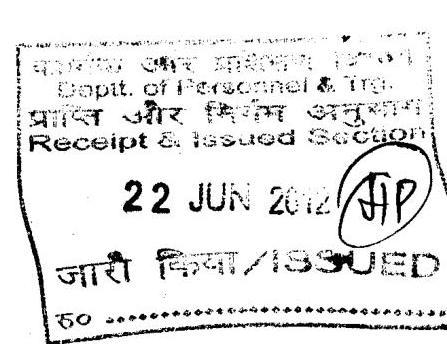 कार्मिक और प्रशिक्षण विभाग
Deptt. of Personnel & Trg.
प्राप्ति और निर्गम अनुभाग
Receipt & Issued Section
22 JUN 2012
जारी किया/ISSUED
ह०